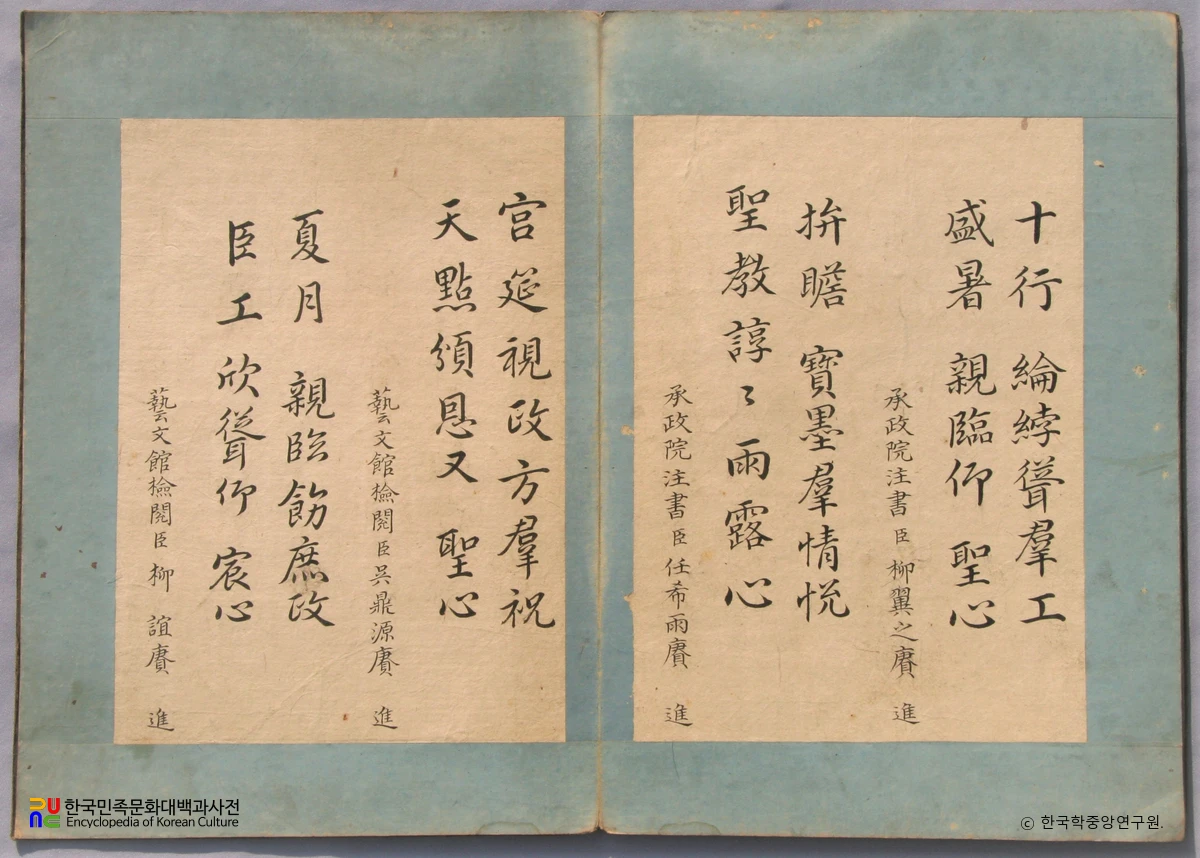 十行 綸綍聳羣工
盛暑 親臨仰 聖心
承政院注書臣柳翼之賡 進
拚瞻 寶墨羣情悅
聖教諄〻雨露心
承政院注書臣任希雨賡 進
宮筵視政方羣祝
天點頒恩又 聖心
藝文館檢閱臣吳鼎源賡 進
夏月 親臨飭庶政
臣工欣聳仰 宸心
藝文館檢閱臣柳 誼賡 進
한국민족문화대백과사전
Encyclopedia of Korean Culture
ⓒ 한국학중앙연구원.